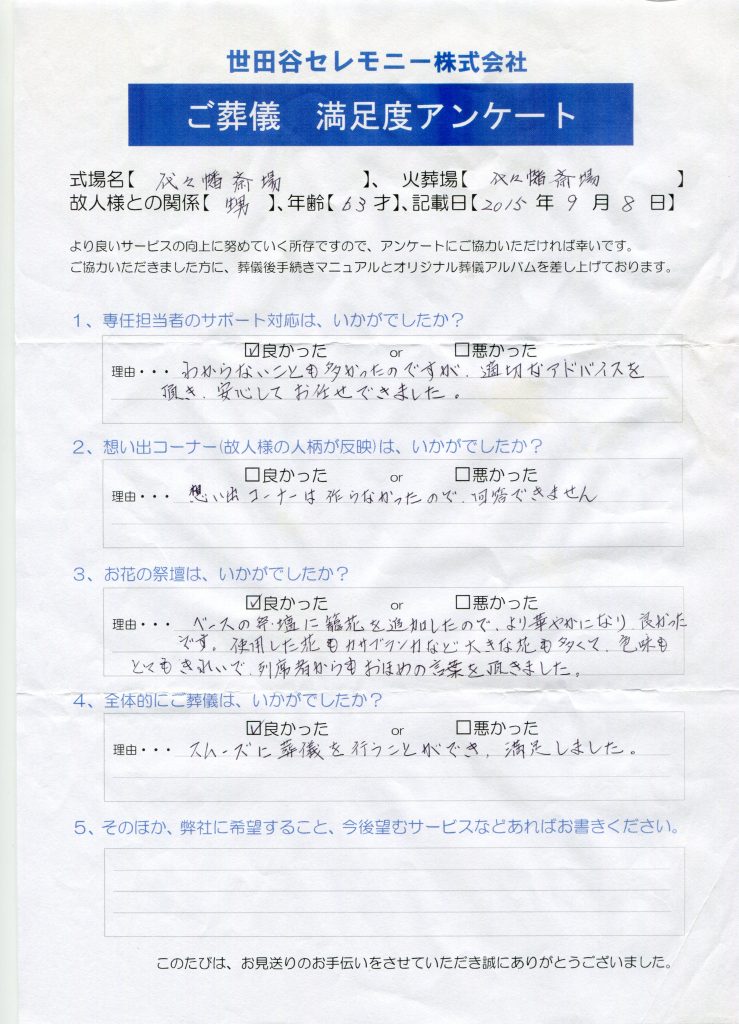 世田谷セレモニー株式会社
ご葬儀　満足度アンケート
式場名【 代々幡斎場 】、 火葬場【 代々幡斎場 】
故人様との関係【 甥 】、年齢【 63 才】、記載日【2015 年 9 月 8 日】
より良いサービスの向上に努めていく所存ですので、アンケートにご協力いただければ幸いです。
ご協力いただきました方に、葬儀後手続きマニュアルとオリジナル葬儀アルバムを差し上げております。
1、専任担当者のサポート対応は、いかがでしたか？
☑良かった or □悪かった
理由・・・ わからないことも多かったのですが、適切なアドバイスを
頂き、安心して お任せできました。
2、想い出コーナー(故人様の人柄が反映)は、いかがでしたか？
□良かった or □悪かった
理由・・・ 想い出コーナーは作らなかったので、回答できません
3、お花の祭壇は、いかがでしたか？
☑良かった or □悪かった
理由・・・ ベースの祭壇に籠花を追加したので、より華やかになり 良かった
です。使用した花もカサブランカなど大きな花も多くて、色味も
とてもきれいで、列席者からもおほめの言葉を頂きました。
4、全体的にご葬儀は、いかがでしたか？
☑良かった or □悪かった
理由・・・ スムーズに葬儀を行うことができ、満足しました。
5、そのほか、弊社に希望すること、今後望むサービスなどあればお書きください。
このたびは、お見送りのお手伝いをさせていただき誠にありがとうございました。